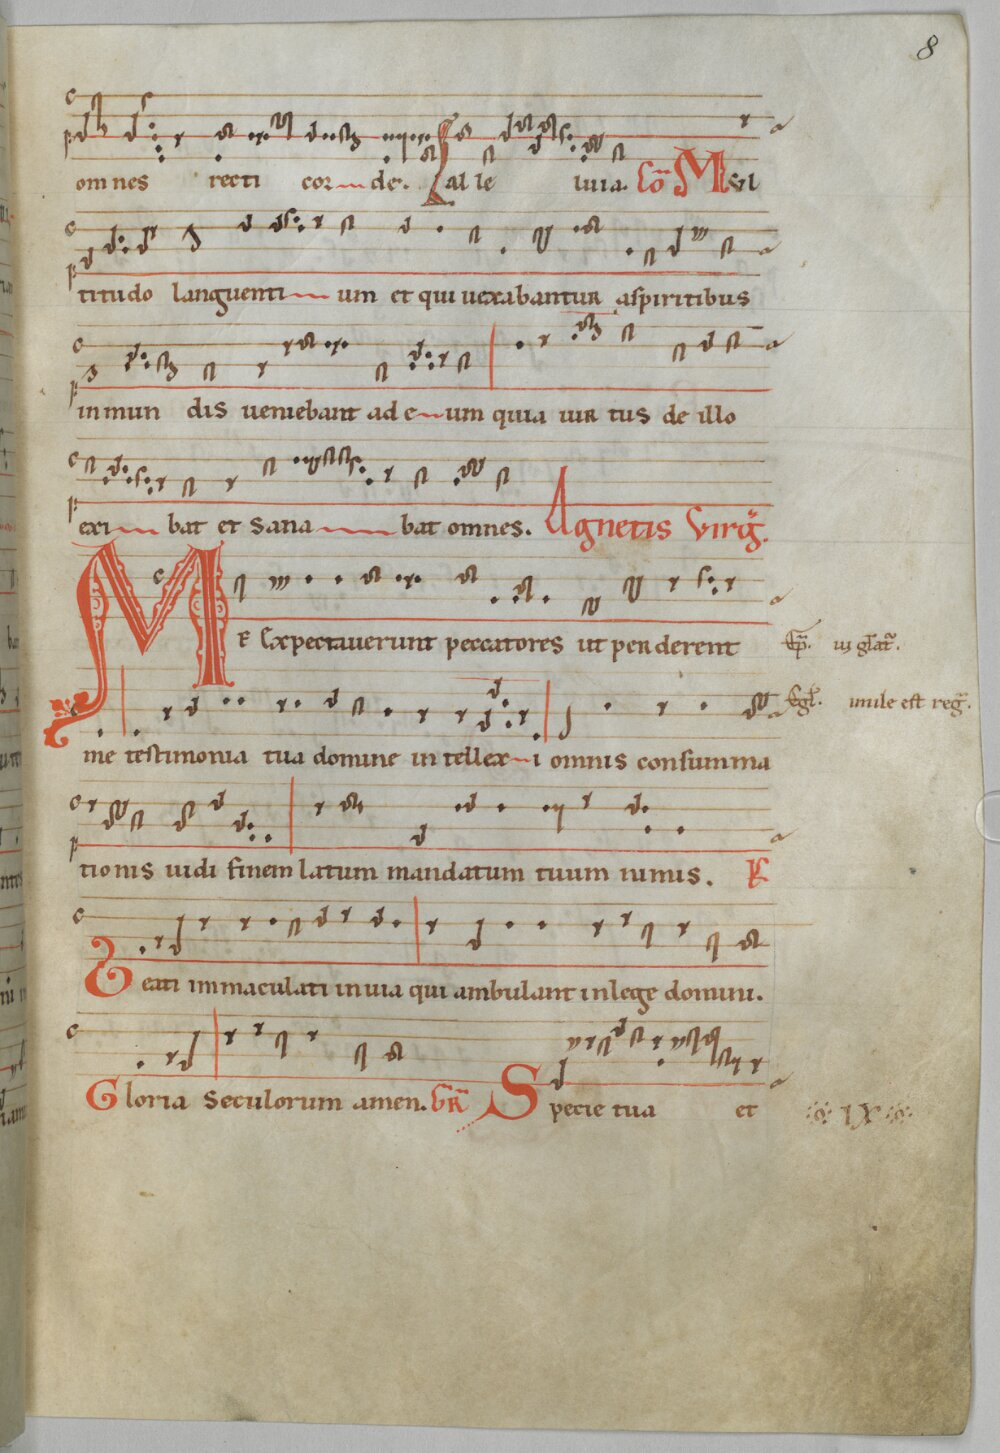 8
omnes recti corde. alle luia. Cō Mul
titudo languentium et qui uexabantur aspiritibus
inmundis ueniebant ad eum quia uirtus de illo
exibat et sanabat omnes. Agnetis Virg̃.
ME Expectauerunt peccatores ut perderent
me testimonia tua domine intellexi omnis consumma
tionis uidi finem latum mandatum tuum nimis.
Beati immaculati inuia qui ambulant inlege domini.
Gloria seculorum amen. GR̄ Specie tua et
simile est reg̃.
IX